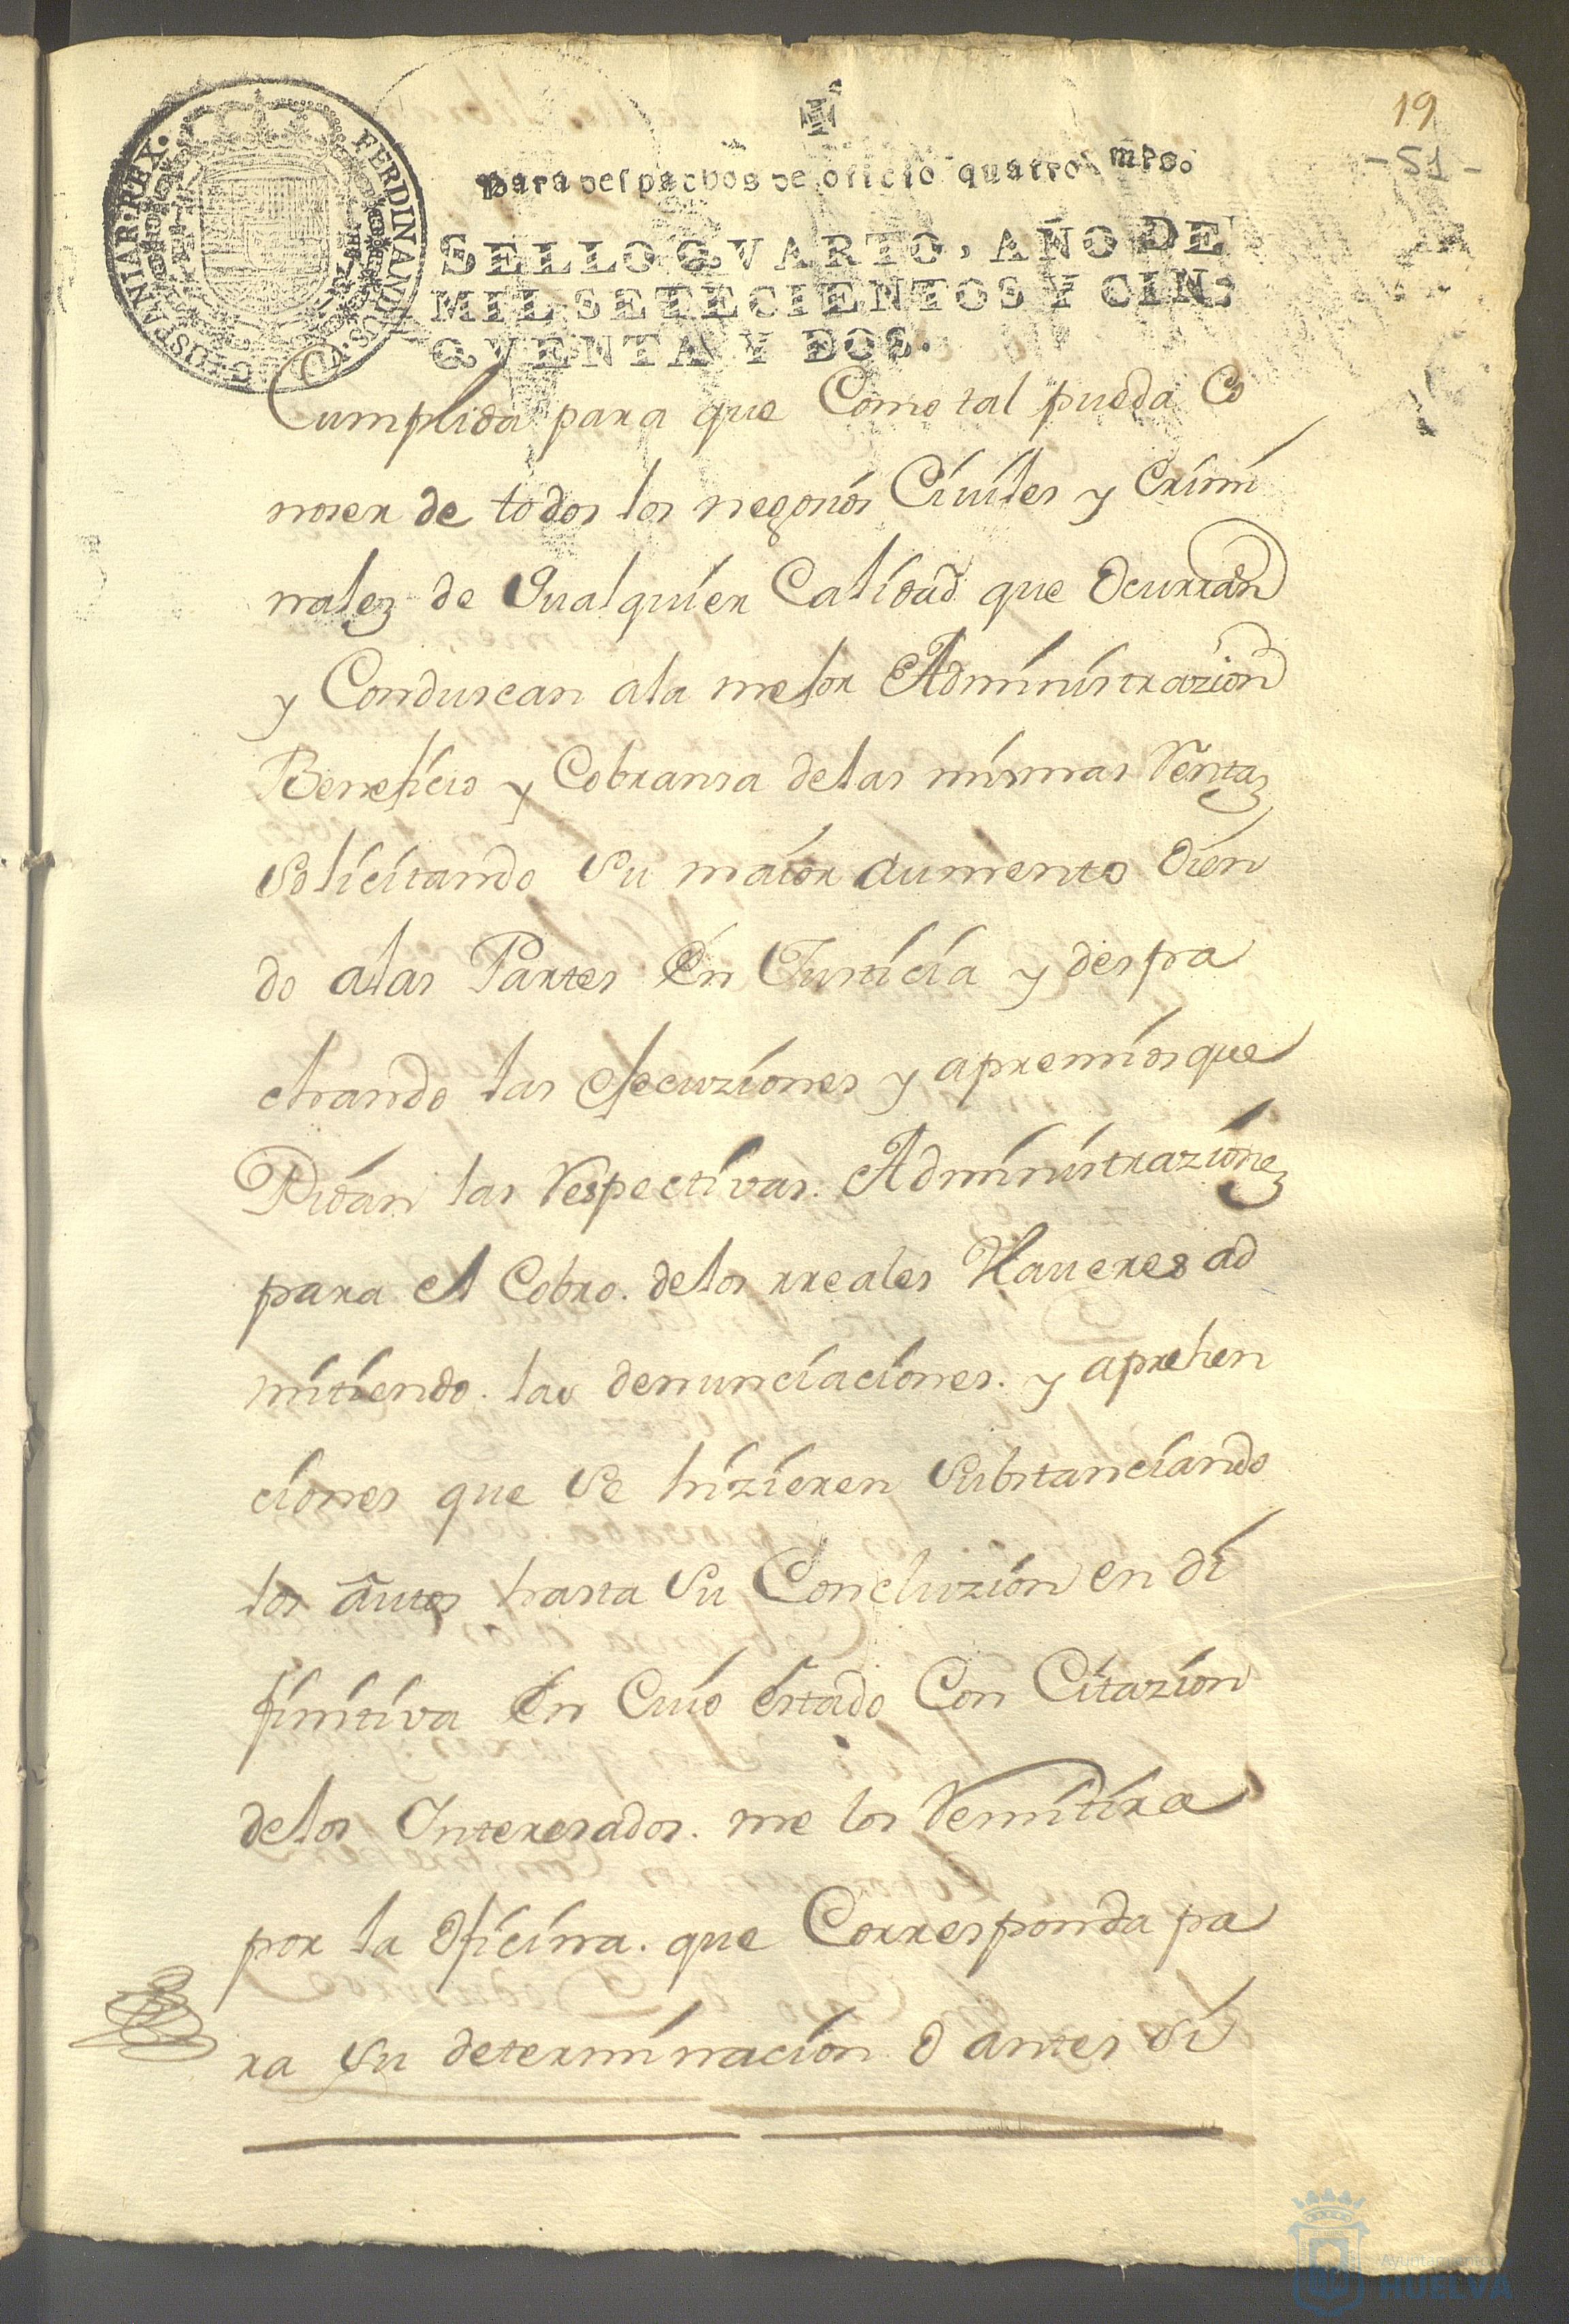 19
-51-
FERDINANDUS.VI.D.G.HISPANIAR.REX.
Para despachos de oficio quatro mrs.
SELLO QVARTO, AÑO DE
MIL SETECIENTOS Y CIN=
QVENTA Y DOS.
Cumplida para que Como tal pueda Co
noser de todos los negocios Ciuiles y Crimi
nales de Qualquier Calidad que Ocurran
y Conduscan ala mejor Administrazion
Beneficio y Cobransa delas mismas Rentas
Solicitando Su maior aumento Oien
do alas Partes En Justicia y despa
chando las ejecuziones y apremios que
Pidan las Respectivas. Administraziones
para el Cobro. delos rreales Haueres ad
mitiendo. las denunciaciones. y aprehen
ciones que Se hizieren Substanciando
los autos hasta Su Concluzion en di
finitiva En Cuio estado Con Citazion
delos Interesados. me los Remitira
por la Oficina. que Corresponda pa
ra Su determinacion. O antes Si
Ayuntamiento
HUELVA